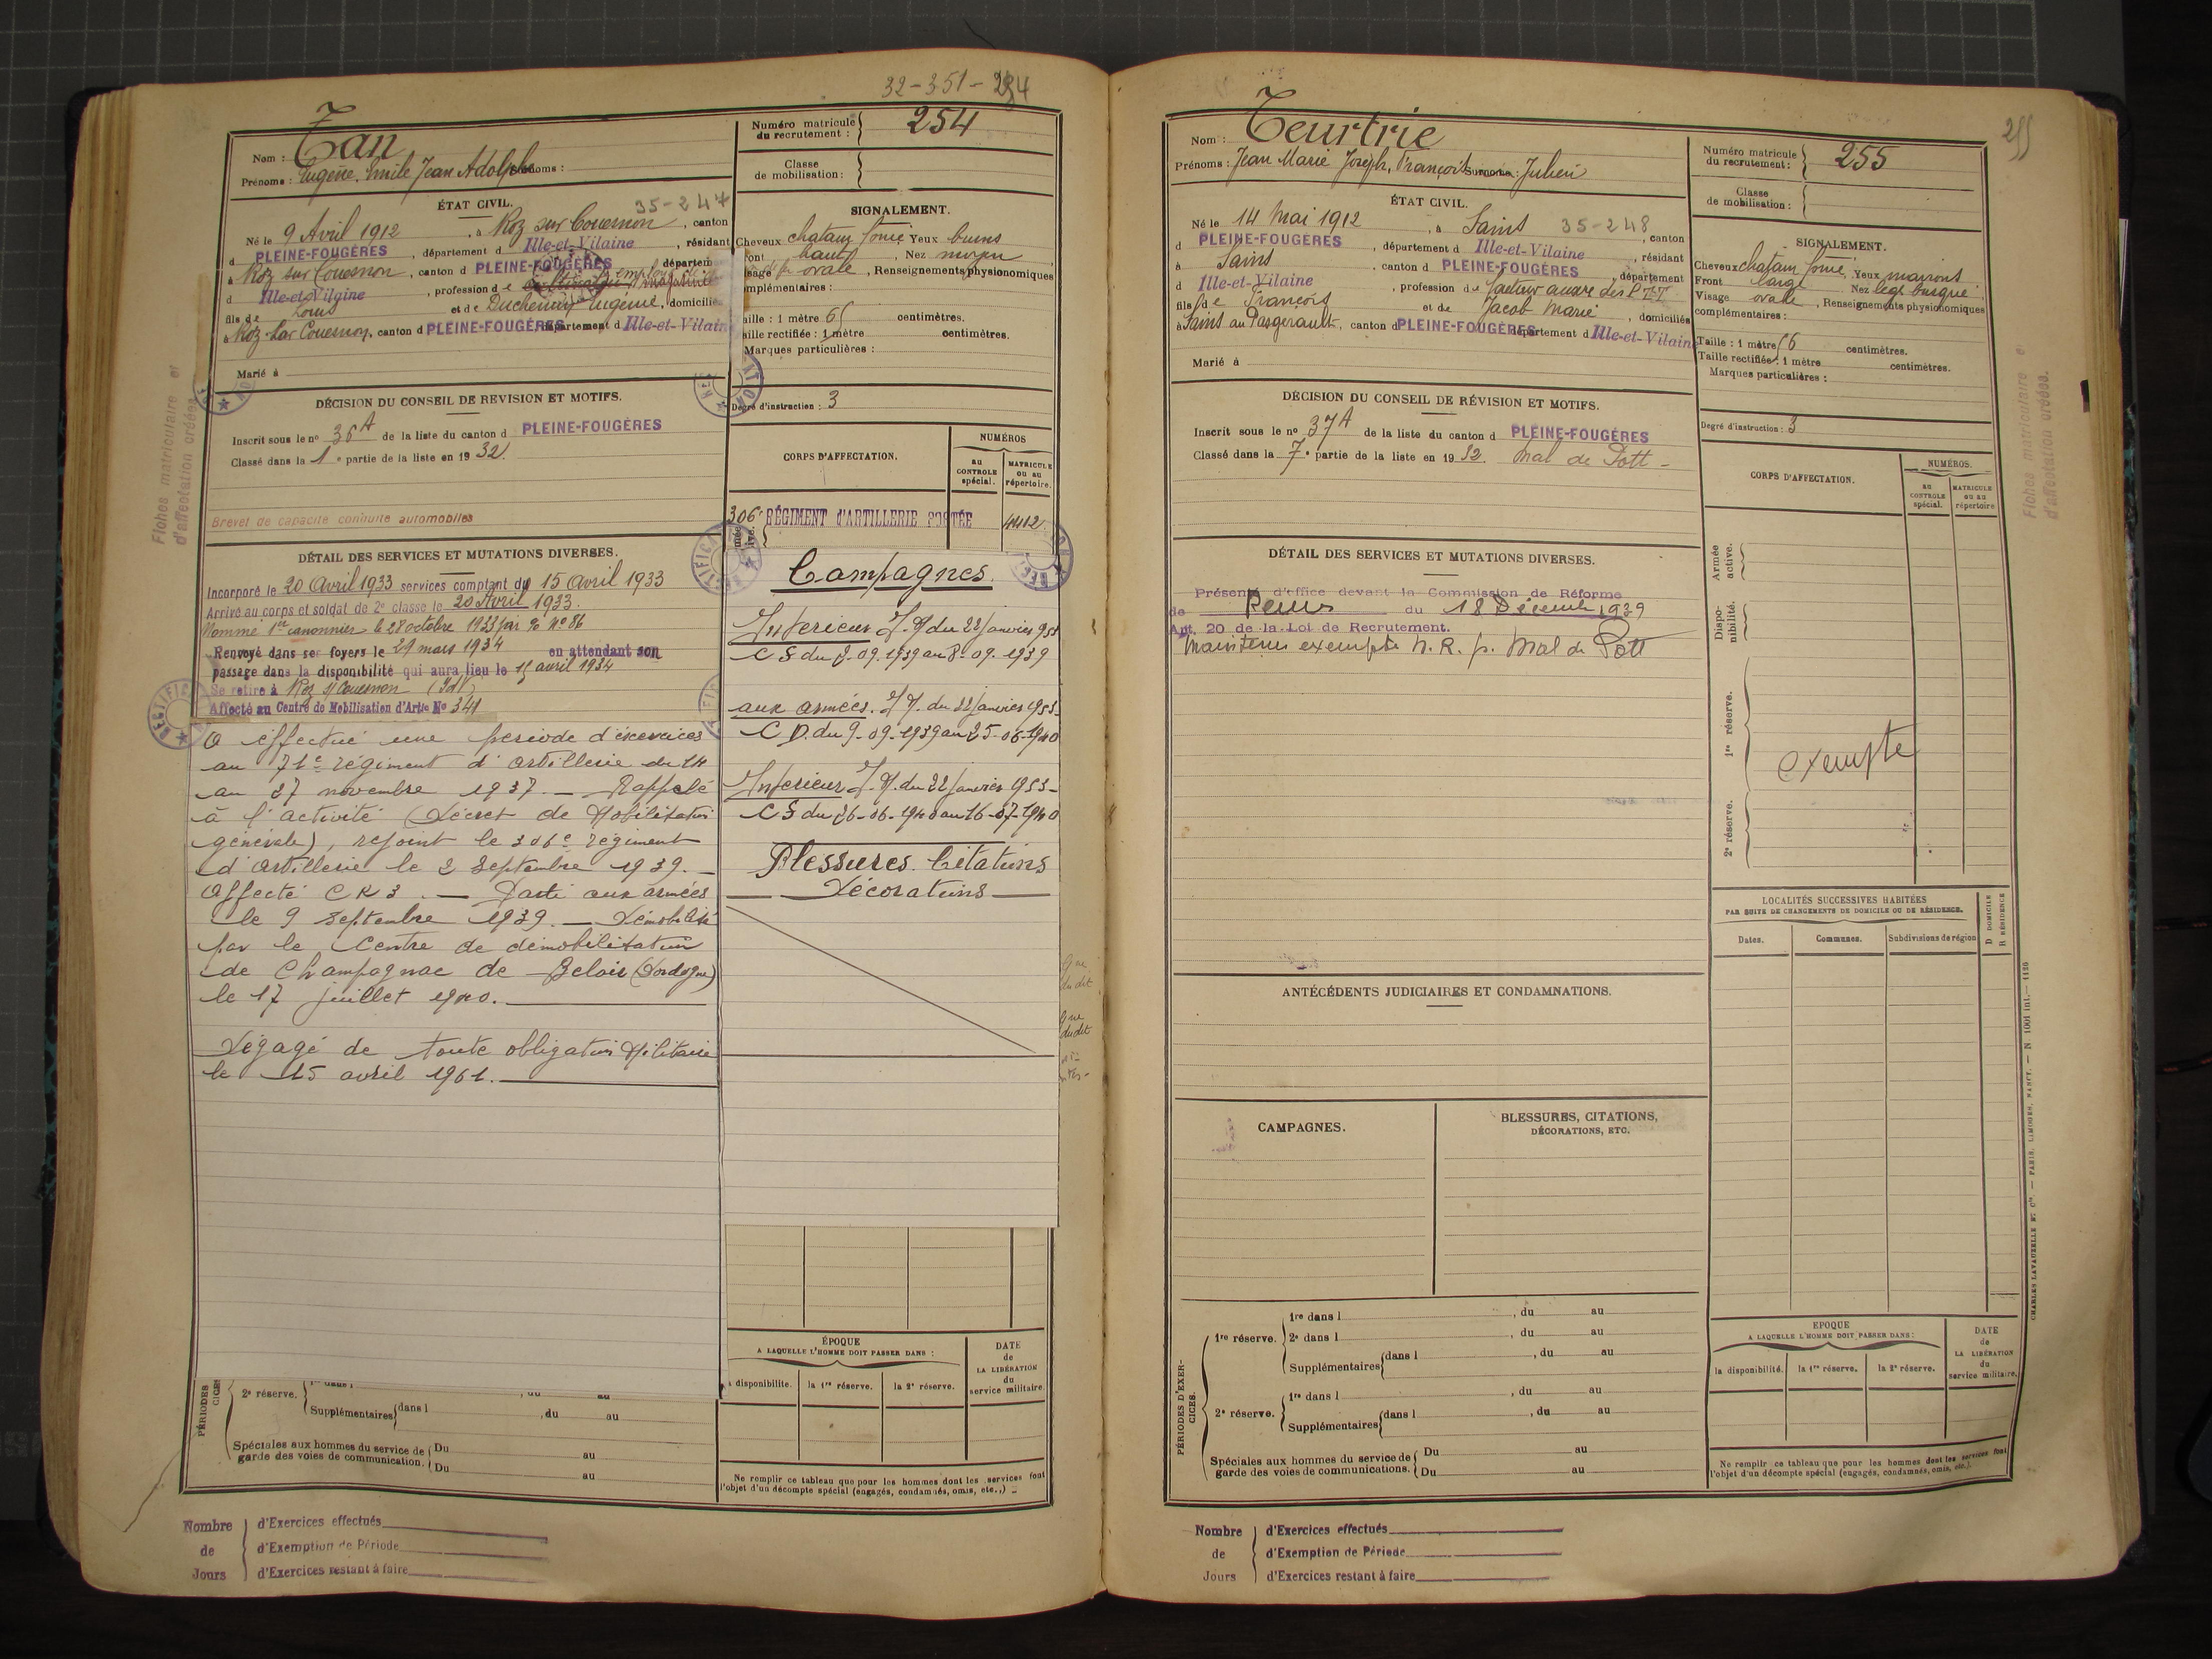 32-351-254
Nom : Tan
Prénoms : Eugène, Emile Jean Adolphe Surnoms :
Numéro matricule du recrutement : 254
Classe de mobilisation :
ÉTAT CIVIL.
35-247
Né le 9 Avril 1912, à Roz sur Couesnon, canton
d PLEINE-FOUGÈRES, département d Ille-et-Vilaine, résidant
à Roz sur Couesnon, canton d PLEINE-FOUGÈRES départem
d Ille-et-Vilaine, profession de employé de magasin
fils de Louis et de Duchemin Eugénie, domicilié
à Roz sur Couesnon, canton d PLEINE-FOUGÈRES département d Ille-et-Vilain
Marié à
SIGNALEMENT.
Cheveux chatain foncé Yeux bruns
ront haut, Nez moyen
isage ovale, Renseignements physionomiques
mplémentaires :
aille : 1 mètre 65 centimètres.
aille rectifiée : 1 mètre centimètres.
Marques particulières :
Degré d'instruction : 3
DÉCISION DU CONSEIL DE RÉVISION ET MOTIFS.
Inscrit sous le nº 36 A de la liste du canton d PLEINE-FOUGÈRES
Classé dans la 1e partie de la liste en 1932.
Brevet de capacité conduite automobiles
CORPS D'AFFECTATION.
NUMÉROS
AU CONTROLE spécial.
MATRICULE ou au répertoire.
306e RÉGIMENT d'ARTILLERIE PORTÉE 4412
DÉTAIL DES SERVICES ET MUTATIONS DIVERSES.
Incorporé le 20 Avril 1933 services comptant du 15 Avril 1933
Arrivé au corps et soldat de 2e classe le 20 Avril 1933.
Nommé 1er canonnier le 28 octobre 1933 par % Nº 86
Renvoyé dans ses foyers le 29 mars 1934 en attendant son
passage dans la disponibilité qui aura lieu le 15 avril 1934
Se retire à Roz s/ Couesnon (I&V)
Affecté au Centre de Mobilisation d'Artie No 341
A effectué une période d'exercices
au 71e régiment d'artillerie du 14
au 27 novembre 1937. — Rappelé
à l'activité (Décret de Mobilisation
générale), rejoint le 306e régiment
d'artillerie le 2 Septembre 1939. —
Affecté CR 3. — Parti aux armées
le 9 Septembre 1939. — Démobilisé
par le Centre de démobilisation
de Champagnac de Belair (Dordogne)
le 17 juillet 1940.
Dégagé de toute obligation Militaire
le 15 avril 1961.
Campagnes.
Interieur J.O du 22 janvier 1953
CS du 2.09.1939 au 8.09.1939
aux armées. J.O. du 22 janvier 1953
C D. du 9.09.1939 au 25-06-1940
Interieur J.O. du 22 janvier 1953
CS du 26-06-1940 au 16-07-1940
Blessures. Citations
Décorations
PÉRIODES CICES
2e réserve.
Supplémentaires dans l , du au
Spéciales aux hommes du service de garde des voies de communication.
Du au
Du au
ÉPOQUE
A LAQUELLE L'HOMME DOIT PASSER DANS :
disponibilité. la 1re réserve. la 2e réserve.
DATE de LA LIBÉRATION du service militaire.
Ne remplir ce tableau que pour les hommes dont les services font
l'objet d'un décompte spécial (engagés, condamnés, omis, etc.,)
Nombre de Jours
d'Exercices effectués
d'Exemption de Période
d'Exercices restant à faire
Fiches matriculaire et
d'affectation créées.
255
Nom : Teurtrie
Prénoms : Jean Marie Joseph, François Surnoms : Julien
Numéro matricule du recrutement : 255
Classe de mobilisation :
ÉTAT CIVIL.
Né le 14 Mai 1912, à Sains 35-248, canton
d PLEINE-FOUGÈRES, département d Ille-et-Vilaine, résidant
à Sains, canton d PLEINE-FOUGÈRES, département
d Ille-et-Vilaine, profession de facteur auxre des PTT
fils de François et de Jacob Marie, domiciliés
à Sains au Pasgerault, canton d PLEINE-FOUGÈRES département d Ille-et-Vilaine
Marié à
SIGNALEMENT.
Cheveux chatain foncé, Yeux marrons
Front large Nez leg busqué
Visage ovale, Renseignements physionomiques
complémentaires :
Taille : 1 mètre 56 centimètres.
Taille rectifiée : 1 mètre centimètres.
Marques particulières :
Degré d'instruction : 3
DÉCISION DU CONSEIL DE RÉVISION ET MOTIFS.
Inscrit sous le nº 37 A de la liste du canton d PLEINE-FOUGÈRES
Classé dans la 7e partie de la liste en 1932. Mal de Pott -
CORPS D'AFFECTATION.
NUMÉROS.
AU CONTROLE spécial.
MATRICULE ou au répertoire
DÉTAIL DES SERVICES ET MUTATIONS DIVERSES.
Présenté d'office devant la Commission de Réforme
de Rennes du 18 Décembre 1939
Art. 20 de la Loi de Recrutement.
Maintenu exempté N. R. p. Mal de Pott
Armée active.
Disponibilité.
1re réserve.
2e réserve.
Exempté
LOCALITÉS SUCCESSIVES HABITÉES
PAR SUITE DE CHANGEMENTS DE DOMICILE OU DE RÉSIDENCE.
Dates. Communes. Subdivisions de région
D DOMICILE
R RÉSIDENCE
ANTÉCÉDENTS JUDICIAIRES ET CONDAMNATIONS.
CAMPAGNES.
BLESSURES, CITATIONS,
DÉCORATIONS, ETC.
PÉRIODES D'EXERCICES.
1re réserve.
1re dans l , du au
2e dans l , du au
Supplémentaires dans l , du au
2e réserve.
1re dans l , du au
Supplémentaires dans l , du au
Spéciales aux hommes du service de garde des voies de communications.
Du au
Du au
ÉPOQUE
A LAQUELLE L'HOMME DOIT PASSER DANS :
la disponibilité. la 1re réserve. la 2e réserve.
DATE de LA LIBÉRATION du service militaire.
Ne remplir ce tableau que pour les hommes dont les services font
l'objet d'un décompte spécial (engagés, condamnés, omis, etc.).
CHARLES LAVAUZELLE ET Cie. — PARIS, LIMOGES, NANCY. — N 1001 int. — 1120
Fiches matriculaire e
d'affectation créées.
Nombre de Jours
d'Exercices effectués
d'Exemption de Période
d'Exercices restant à faire